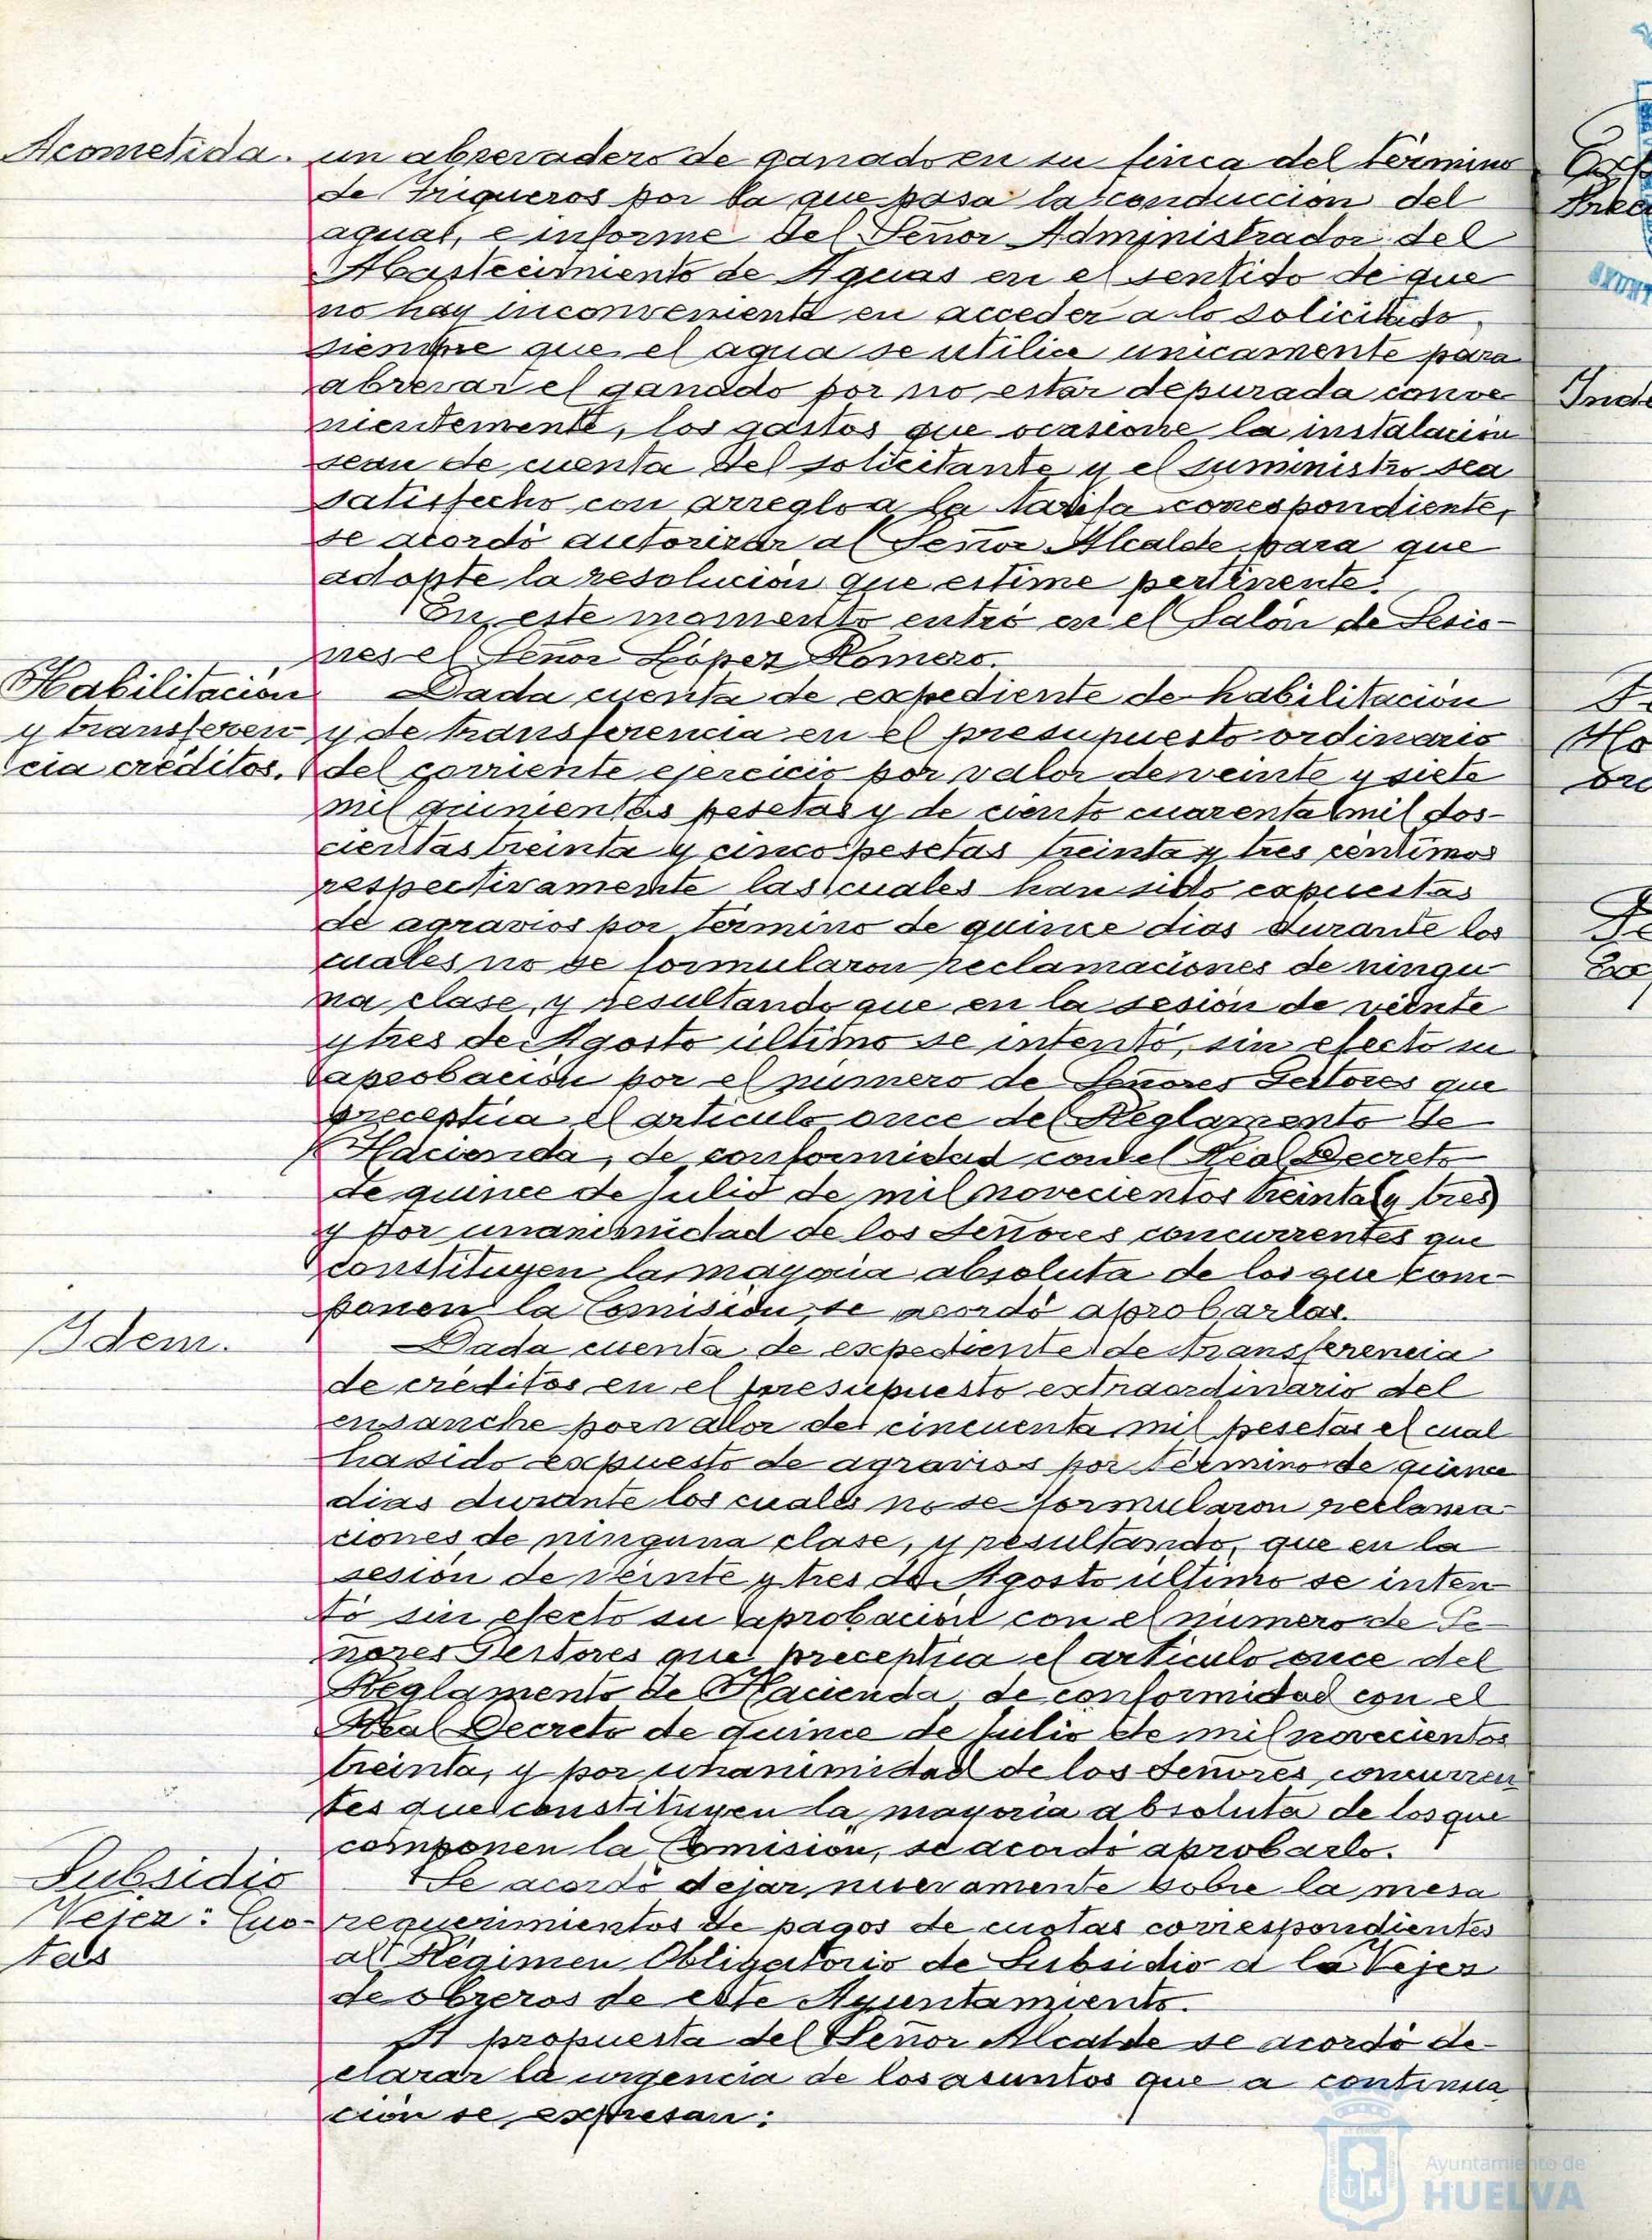 Acometida. un abrevadero de ganado en su finca del término
de Trigueros por la que pasa la conducción del
agua, e informe del Señor Administrador del
Abastecimiento de Aguas en el sentido de que
no hay inconveniente en acceder a lo solicitado,
siempre que el agua se utilice unicamente para
abrevar el ganado por no estar depurada conve
nientemente, los gastos que ocasione la instalación
sean de cuenta del solicitante y el suministro sea
satisfecho con arreglo a la tarifa correspondiente,
se acordó autorizar al Señor Alcalde para que
adopte la resolución que estime pertinente.
En este momento entró en el Salón de Sesio-
nes el Señor López Romero.
Habilitación Dada cuenta de expediente de habilitación
y transferen y de transferencia en el presupuesto ordinario
cia créditos. del corriente ejercicio por valor de veinte y siete
mil quinientas pesetas y de ciento cuarenta mil dos-
cientas treinta y cinco pesetas treinta y tres céntimos
respectivamente las cuales han sido expuestas
de agravios por término de quince dias durante los
cuales no se formularon reclamaciones de ningu
na clase, y resultando que en la sesión de veinte
y tres de Agosto último se intentó, sin efecto su
aprobación por el número de Señores Gestores que
preceptúa el articulo once del Reglamento de
Hacienda, de conformidad con el Real Decreto
de quince de Julio de mil novecientos treinta y tres
y por unanimidad de los Señores concurrentes que
constituyen la mayoría absoluta de los que com-
ponen la Comisión, se acordó aprobarlas.
Idem. Dada cuenta de expediente de transferencia
de créditos en el presupuesto extraordinario del
ensanche por valor de cincuenta mil pesetas el cual
ha sido expuesto de agravios por término de quince
dias durante los cuales no se formularon reclama-
ciones de ninguna clase, y resultando, que en la
sesión de veinte y tres de Agosto último se inten
tó sin efecto su aprobación con el número de Se-
ñores Gestores que preceptúa el articulo once del
Reglamento de Hacienda, de conformidad con el
Real Decreto de quince de Julio de mil novecientos
treinta, y por unanimidad de los Señores concurren
tes que constituyen la mayoría absoluta de los que
componen la Comisión, se acordó aprobarlo.
Subsidio Se acordó dejar nuevamente sobre la mesa
Vejez: Cuo- requerimientos de pagos de cuotas correspondientes
tas al Régimen Obligatorio de Subsidio a la Vejez
de obreros de este Ayuntamiento.
A propuesta del Señor Alcalde se acordó de-
clarar la urgencia de los asuntos que a continua
ción se expresan:
Ayuntamiento de
HUELVA